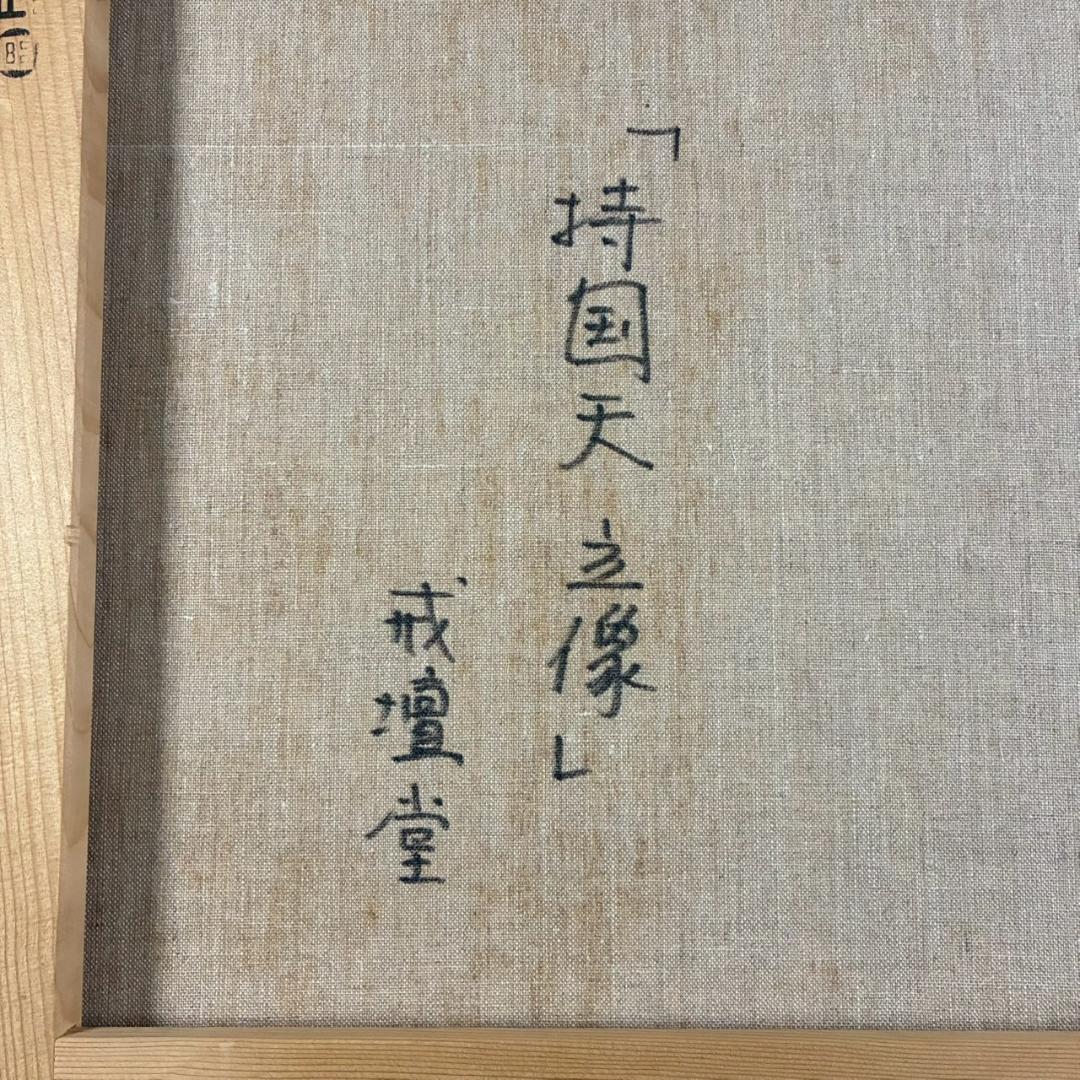 「持国天 立像」
戒壇堂